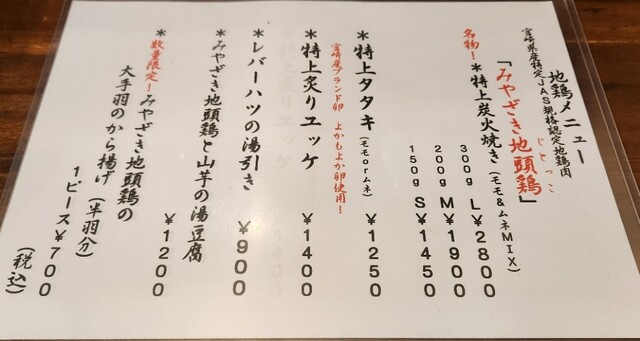 地鶏メニュー
宮崎県産特定JAS規格認定地鶏肉
「みやざき地頭鶏」
じとっこ
名物!
＊特上炭火焼き(モモ&ムネMIX)
300g L¥2800
200g M¥1900
150g S¥1450
＊特上タタキ(モモorムネ)
¥1250
宮崎産ブランド卵 よかもよか卵使用!
＊特上炙りユッケ ¥1400
＊レバーハツの湯引き ¥900
＊みやざき地頭鶏と山芋の湯豆腐
¥1200
数量限定!
＊みやざき地頭鶏の
大手羽のから揚げ(半羽分)
1ピース¥700
(税込)